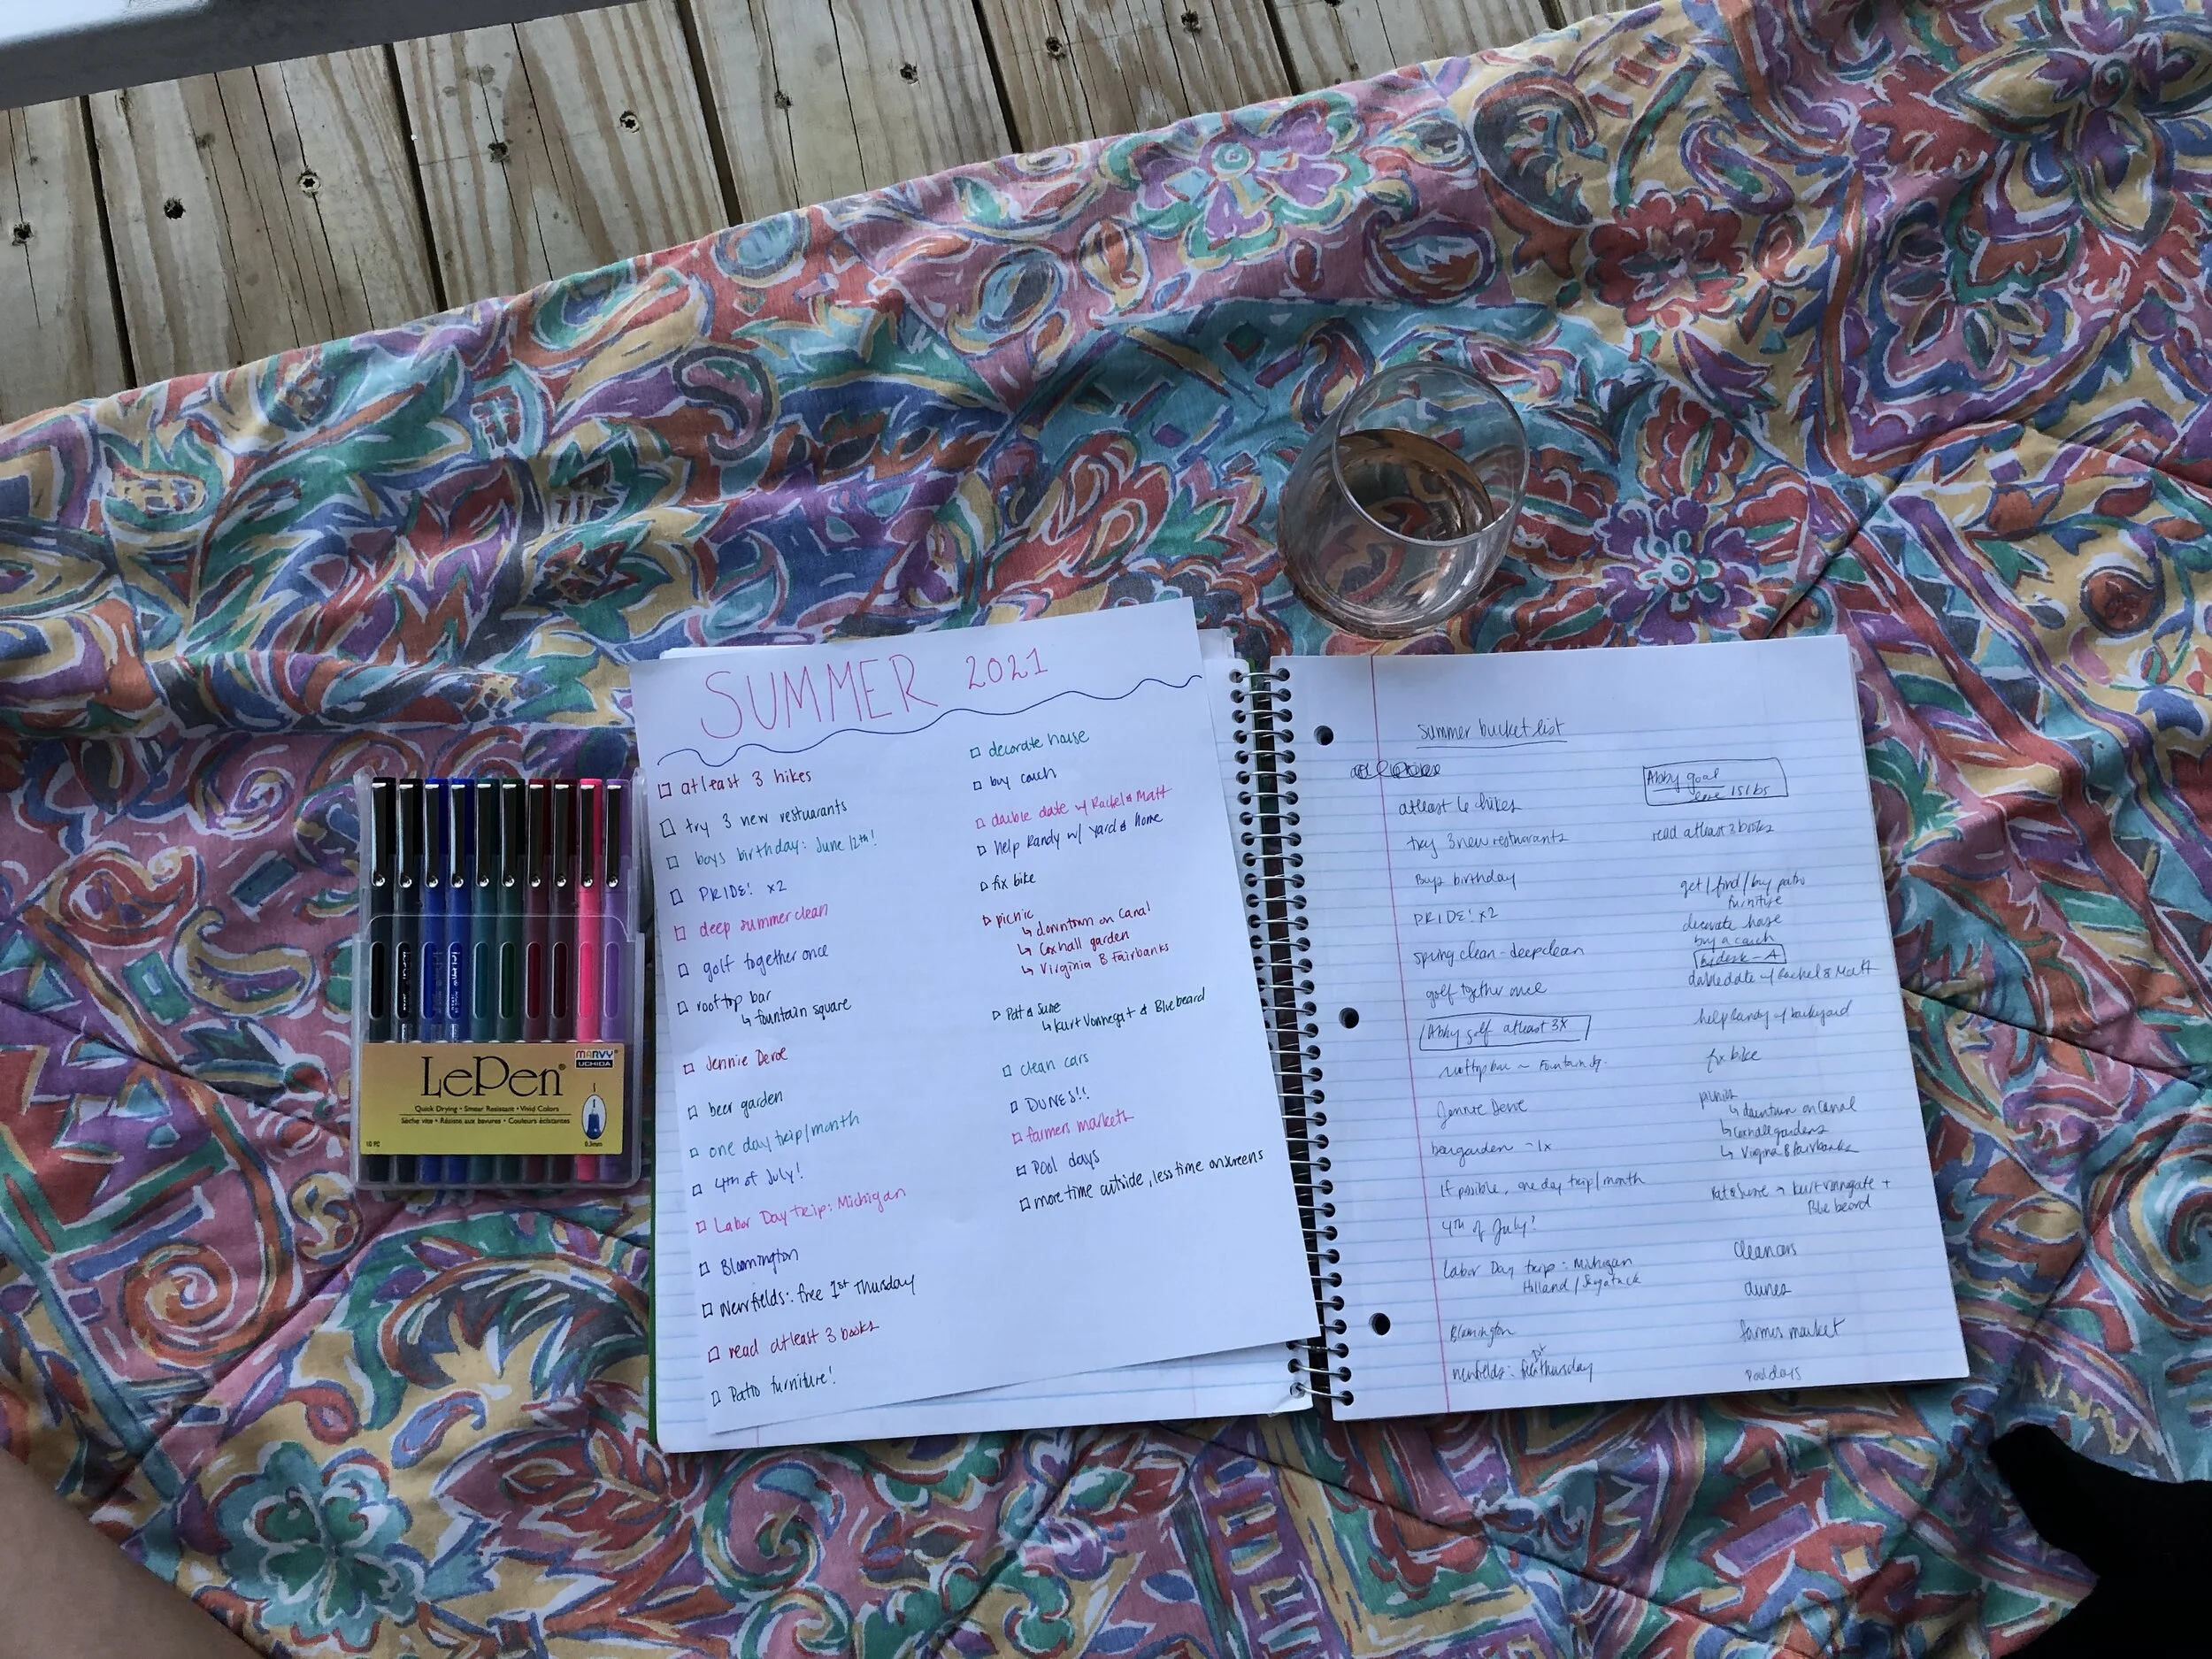 SUMMER 2021
atleast 3 hikes
try 3 new restuarants
boys birthday: June 12th!
PRIDE! x2
deep summer clean
golf together once
rooftop bar
↳ fountain square
Jennie Deroe
beer garden
one day trip/month
4th of July!
Labor Day trip: Michigan
Bloomington
Newfields: free 1st Thursday
read atleast 3 books
Patio furniture!
decorate house
buy couch
double date w/ Rachel & Matt
help Randy w/ yard & home
fix bike
picnic
↳ downtown on Canal
↳ Coxhall garden
↳ Virginia B Fairbanks
Pat & Suze
↳ Kurt Vonnegut & Bluebeard
clean cars
DUNES!!
farmers markets
Pool days
more time outside, less time on screens
LePen®
MARVY®
UCHIDA
Quick Drying • Smear Resistant • Vivid Colors
Sèche vite • Résiste aux bavures • Couleurs éclatantes
10 PC
0.3mm
Summer bucket list
atleast 6 hikes
try 3 new resturants
Boys birthday
PRIDE! x2
spring clean - deep clean
golf together once
Abby golf atleast 3x
rooftop bar ~ Fountain Sq.
Jennie Deroe
beergarden ~ 1x
If possible, one day trip/month
4th of July!
labor Day trip: Michigan
Holland/
Bloomington
newfields: 1st Thursday
Abby goal
lose 15 lbs
read atleast 3 books
get/find/buy patio
furniture
decorate house
buy a couch
doubledate w/ Rachel & Matt
help Randy w/ backyard
fix bike
picnic
↳ downtown on Canal
↳ gardens
↳ Virginia B Fairbanks
Pat & Suze → Kurt Vonnegate +
Blue beard
Clean cars
dunes
farmers market
Pool days